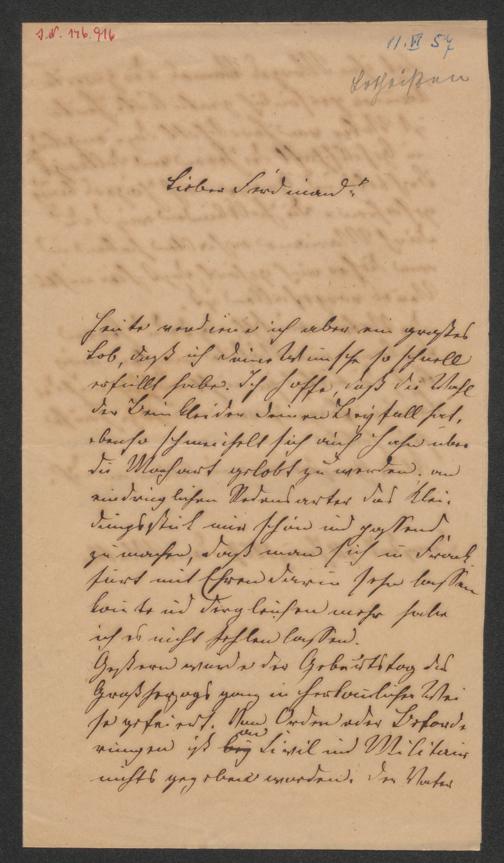 J.N. 176.916
11. VI 57
Lotheißen
Lieber Ferdinand!
Heute verdiene ich aber ein großes
Lob, daß ich deine Wünsche so schnell
erfüllt habe. Ich hoffe, daß die Wahl
der Beinkleider deinen Beifall hat,
ebenso schmeichelt sich auch Jahn über
die Machart gelobt zu werden; an
eindringlichen Redensarten das Klei-
dungsstück nur schön und passend
zu machen, daß man sich in Frank-
furt mit Ehren darin sehn lassen
könnte und dergleichen mehr habe
ich es nicht fehlen lassen.
Gestern wurde der Geburtstag des
Großherzogs ganz in herkömlicher Wei
se gefeiert. Von Orden oder Beförde-
rungen ist an Civil und Militair
nichts gegeben worden. Der Vater